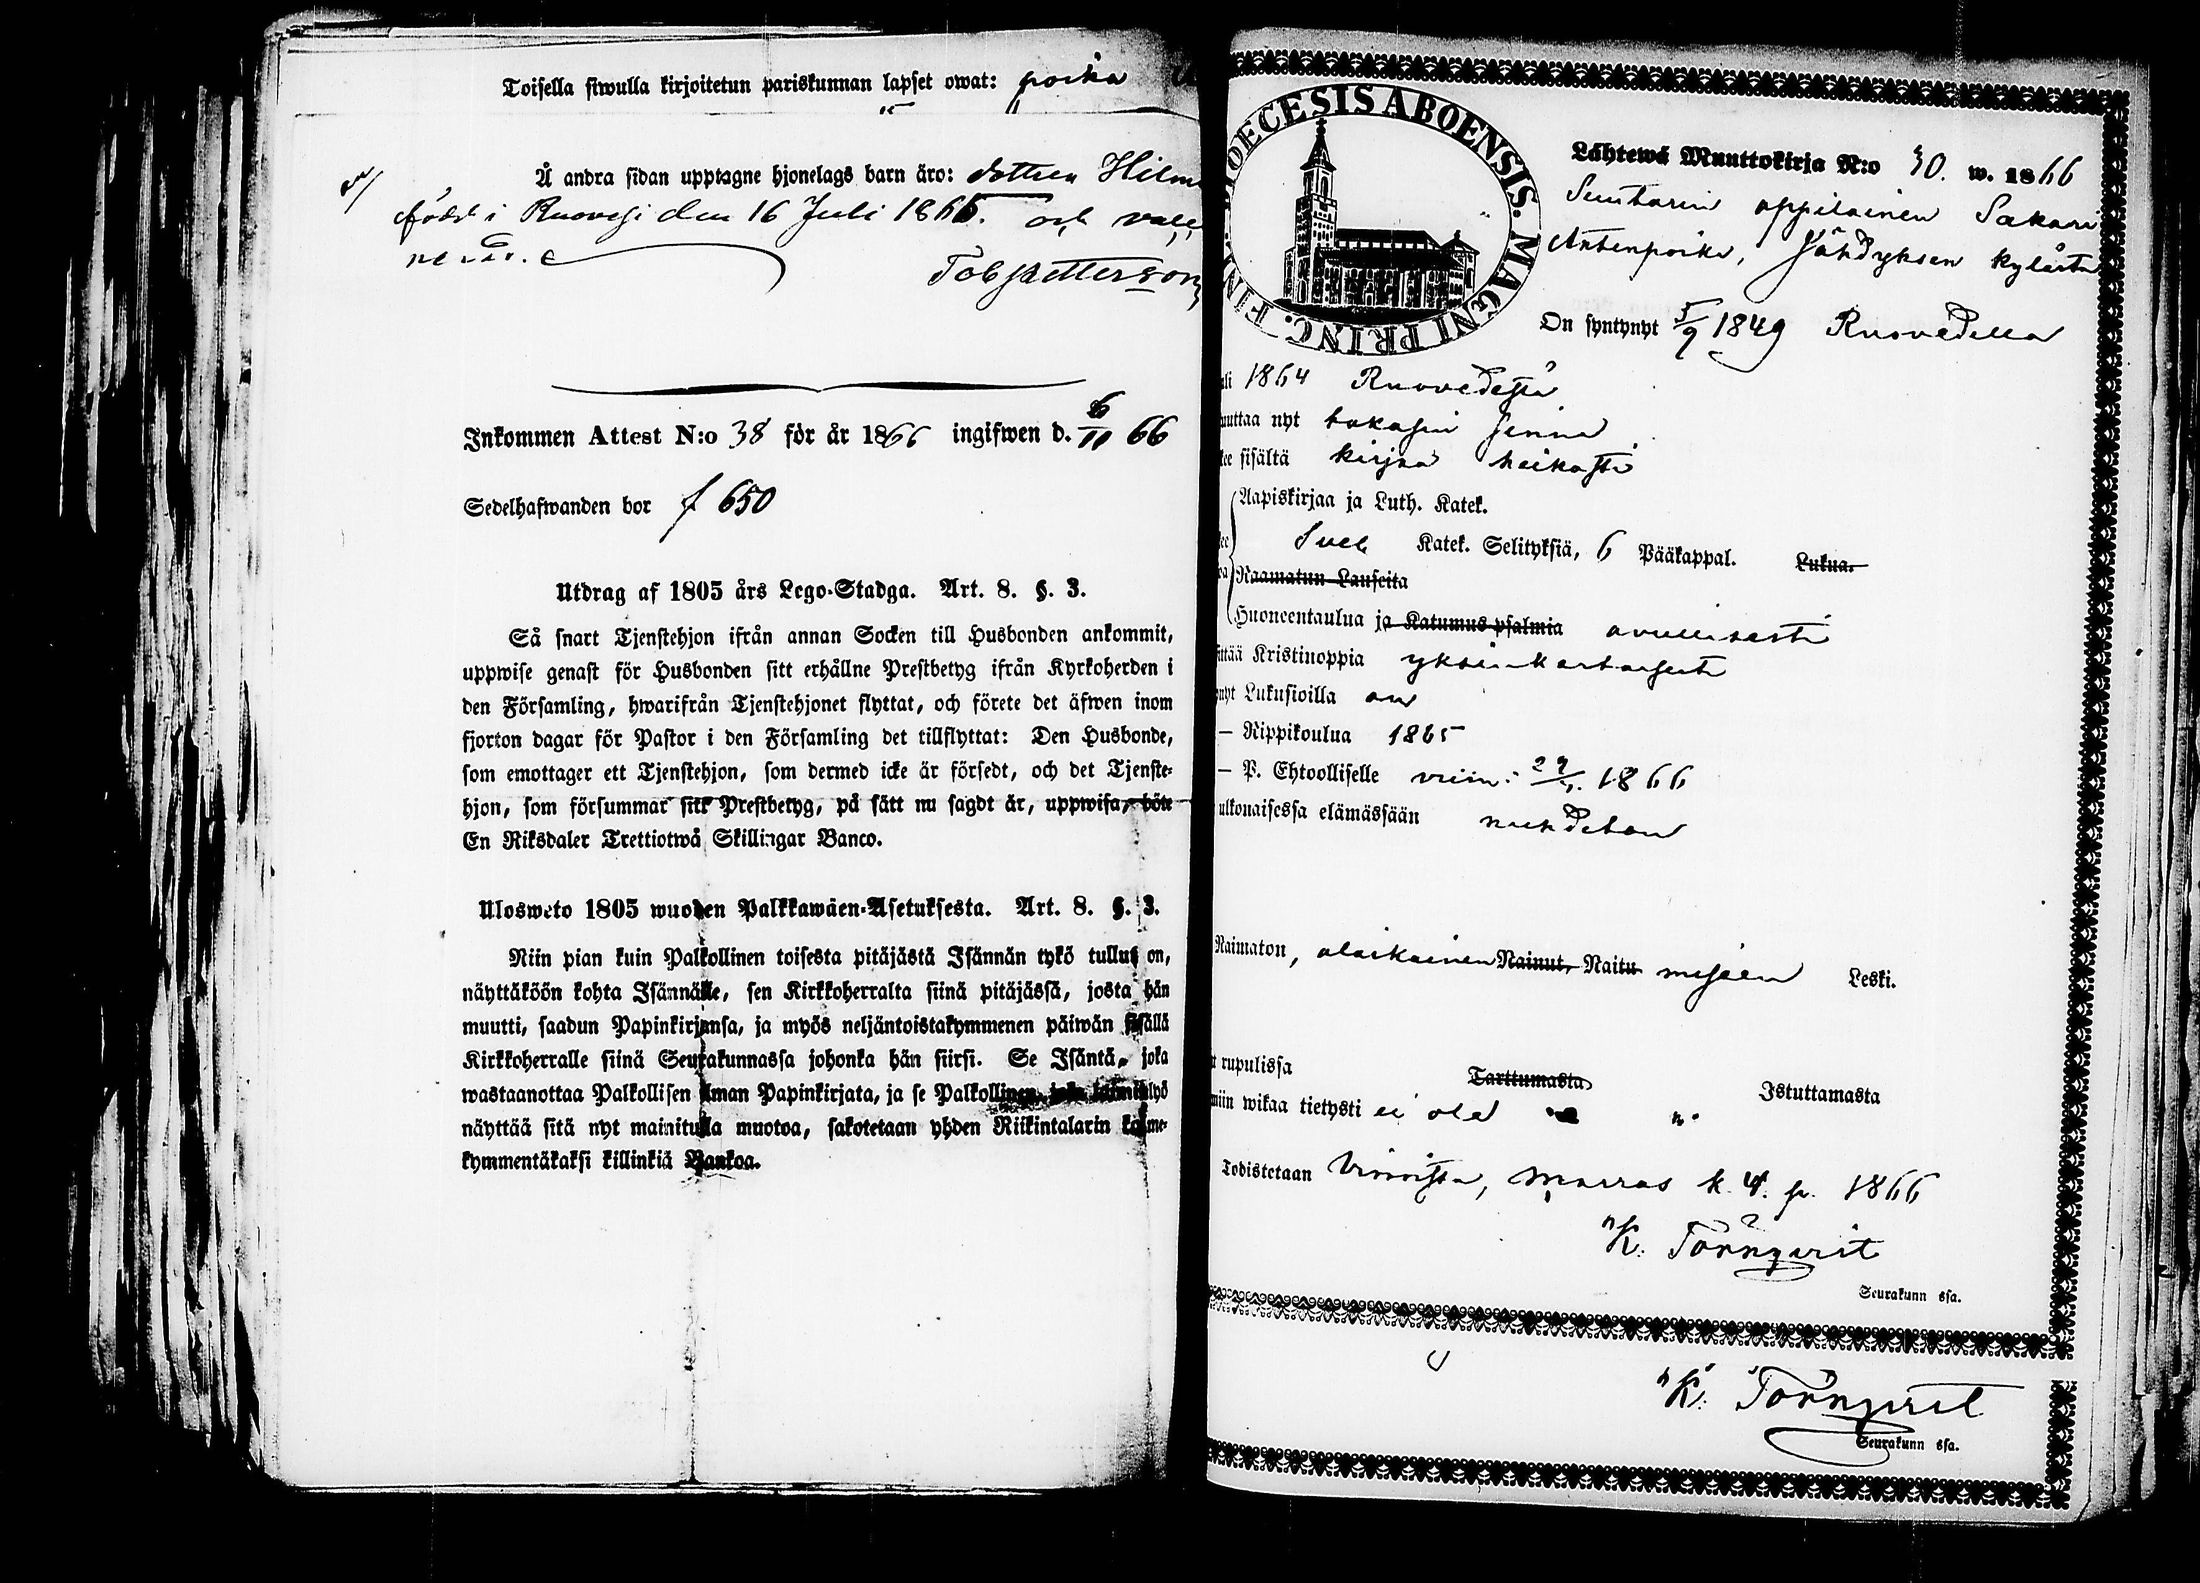 Toisella siwulla kirjoitetun pariskunnan lapset owat: poika
Å andra sidan upptagne hjonelags barn äro: dottren Hilm
född i Ruovesi den 16 Juli 1866. och vacc
nerad.
Tob Petterson
Inkommen Attest N:o 38 för år 1866 ingifwen d. 6/11 66
Sedelhafwanden bor f 650
Utdrag af 1805 års Lego-Stadga. Art. 8. §. 3.
Så snart Tjenstehjon ifrån annan Socken till Husbonden ankommit,
uppwise genast för Husbonden sitt erhållne Prestbetyg ifrån Kyrkoherden i
den Församling, hwarifrån Tjenstehjonet flyttat, och förete det äfwen inom
fjorton dagar för Pastor i den Församling det tillflyttat: Den Husbonde,
som emottager ett Tjenstehjon, som dermed icke är försedt, och det Tjenste-
hjon, som försummar sitt Prestbetyg, på sätt nu sagdt är, uppwisa, böte
En Riksdaler Trettiotwå Skillingar Banco.
Ulosweto 1805 wuoden Palkkawäen-Asetuksesta. Art. 8. §. 3.
Niin pian kuin Palkollinen toisesta pitäjästä Isännän tykö tullut on,
näyttäköön kohta Isännälle, sen Kirkkoherralta siinä pitäjässä, josta hän
muutti, saadun Papinkirjansa, ja myös neljäntoistakymmenen päiwän sisällä
Kirkkoherralle siinä Seurakunnassa johonka hän siirsi. Se Isäntä, joka
wastaanottaa Palkollisen ilman Papinkirjata, ja se Palkollinen, joka laiminlyö
näyttää sitä nyt mainitulla muotoa, sakotetaan yhden Riikintalarin kolme-
kymmentäkaksi killinkiä Bankoa.
DIOECESIS ABOENSIS. MAGNI PRINC. FINL.
Lähtewä Muuttokirja N:o 30. w. 1866
Suutarin oppilainen Sakari
Antenpoika, Jähdyksen kylästä
On syntynyt 5/9 1849 Ruovedellä
li 1864 Ruovedestä
uuttaa nyt takasin sinne
kee sisältä kirjaa heikosti
Aapiskirjaa ja Luth. Katek.
Sveb Katek. Selityksiä, 6 Pääkappal. Lukua.
Raamatun Lauseita
Huoneentaulua ja Katumus-psalmia avullisesti
ittää Kristinoppia yksinkertaisesti
ynyt Lukusioilla on
— Rippikoulua 1865
— P. Ehtoolliselle viim. 1866
ulkonaisessa elämässään nuhdeton
Naimaton, alaikainen Nainut, Naitu miseen Leski.
rupulissa Tarttumasta Istuttamasta
niin wikaa tietysti ei ole " "
Todistetaan Virroista, Marras k. 4. p. 1866
K. Törnqvist
Seurakunn ssa.
K. Törnqvist
Seurakunn ssa.